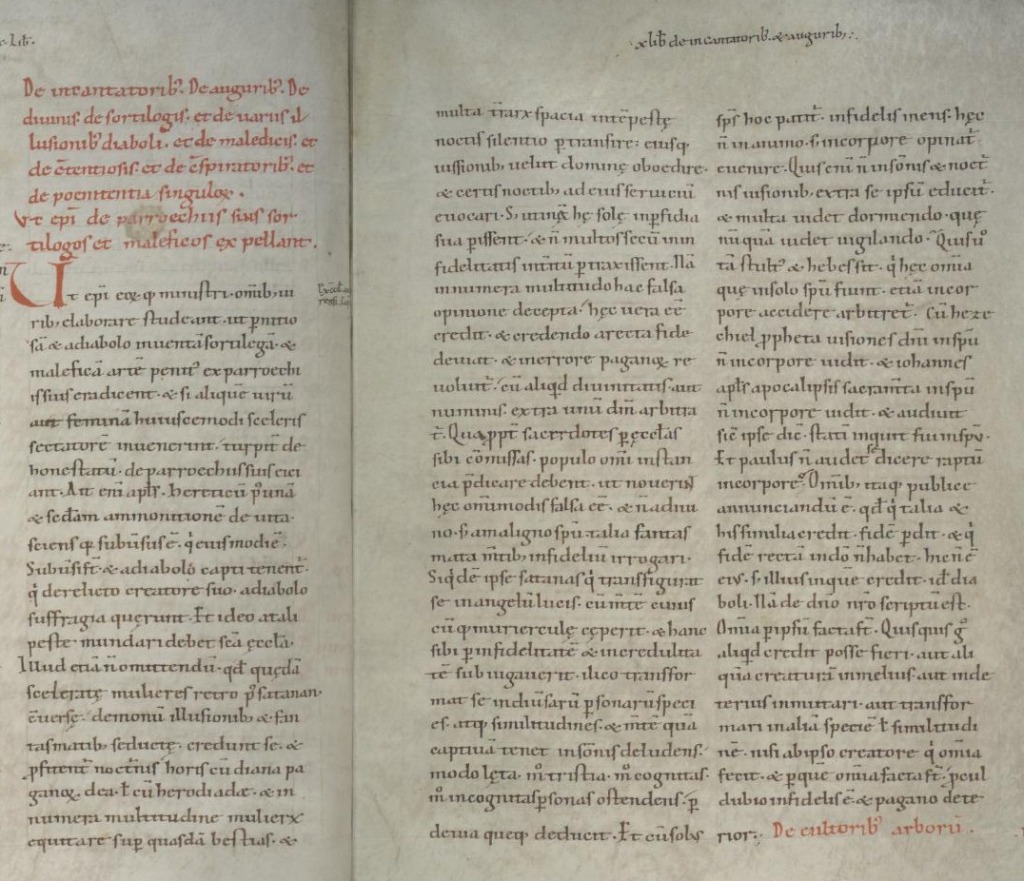 x lib̄ de incantatorib. & augurib;.
De incantatorib'. De augurib'. De
diuinis. de sortilogis. et de uariis il
lusionib' diaboli. et de maledicis. et
de c̄tentiosis. et de c̄spiratorib'. et
de poenitentia singuloꝝ.
Vt ep̄i de parroechiis suis sor
tilogos et maleficos expellant.
Ut ep̄i eoꝝq; ministri. omib; ui
rib; elaborare studeant. ut p̄nitio
sā & a diabolo inuentā sortilegā. &
maleficā artē penit' ex parroechi
is suis eradicent. & si aliquē uirū
aut feminā huiuscemodi sceleris
sectatorē inuenerint. turpit̄ de
honestatū. de parroechiis suis eici
ant. Ait eni ap̄ls. hereticū p' unā
& sc̄dam ammonitionē de uita.
sciens q; subūsus ē. q̄ eiusmodi ē.
Subūsi s̄t. & a diabolo capti tenent̄.
q̄ derelicto creatore suo. a diabolo
suffragia querunt. Et ideo a tali
peste. mundari debet sc̄a ęccła.
Illud etiā n̄ omittendū. qđ quędā
sceleratę mulieres retro p' satanan
c̄uersę. demonū illusionib; & fan
tasmatib; seductę. credunt se. &
p̄fitent̄ noct̄nis horis cū diana pa
ganoꝝ. dea. ł cū herodiade. & in
numera multitudine mulierꝝ
equitare sup̄ quasdā bestias. &
multa t̄rarꝝ spacia intēpestę
noctis silentio ꝑtransire. eiusq;
iussionib; uelut dominę oboedire.
& certis noctib; ad eius seruiciū
euocari. S; utinā hę solę in ꝑfidia
sua ꝑissent. & n̄ multos secū in in
fidelitatis int̄itū ꝑtraxissent. Nā
innumera multitudo hac falsa
opinione decepta. hęc uera eē
credit. & credendo a recta fide
deuiat. & in errore paganoꝝ re
uoluit̄. cū aliqđ diuinitatis. aut
numinis. extra unū dm̄ arbitra
t̄. Qua ppt̄ sacerdotes ꝑ ęcclas
sibi cōmissas. populo omi instan
cia p̄dicare debent. ut nouerint
hęc omimodis falsa eē. & n̄ a diui
no. s; a maligno sp̄u. talia fantas
mata m̄tib; infideliū irrogari.
Siqđē ipse satanas q̄ transfigurat
se in angelū lucis. cū m̄tē cuius
cūq; mulierculę cęperit. & hanc
sibi ꝑ infidelitatē & incredulita
tē subiugauerit. ilico transfor
mat se in diūsarū ꝑsonarū speci
es. atq; similitudines. & m̄tē quā
captiuā tenet in sōnis deludens.
modo lęta. m̊ tristia. m̊ cognitas.
m̊ incognitas ꝑsonas ostendens. ꝑ
deuia quęq; deducit. Et cū solus
sp̄s hoc patit̄. infidelis mens. hęc
n̄ in animo. s; in corpore opinat̄
euenire. Quis eni n̄ in sōnis & noct̄
nis uisionib; extra se ipsū educit̄.
& multa uidet dormiendo. quę
nūquā uidet uigilando. Quis ū
tā stult' & hebes sit. q̄ hęc omia
quę in solo sp̄u fiunt. etiā in cor
pore accidere arbitret̄. Cū heze
chiel ꝓpheta uisiones dn̄i in sp̄u
n̄ in corpore uidit. & iohannes
ap̄ls apocalipsis sacram̄ta in sp̄u
n̄ in corpore uidit. & audiuit
sic̄ ipse dic̄. statī inquit fui in sp̄u.
Et paulus n̄ audet se dicere raptū
in corpore. Omib; itaq; publice
annunciandū ē. qđ q̄ talia &
his similia credit. fidē ꝑdit. & q̄
fidē rectā in dō n̄ habet. hic n̄ ē
eiꝰ. s; illius in quē credit. id; dia
boli. Nā de dn̄o nr̄o scriptū est.
Omia ꝑ ipsū facta st̄. Quisquis g̊
aliqđ credit posse fieri. aut ali
quā creaturā in melius. aut in de
terius inmutari. aut transfor
mari in aliā speciē ł similitudi
nē. nisi ab ipso creatore q̄ omia
fecit. & ꝑ quē omia facta st̄. ꝓcul
dubio infidelis ē. & pagano dete
rior. De cultorib' arborū.